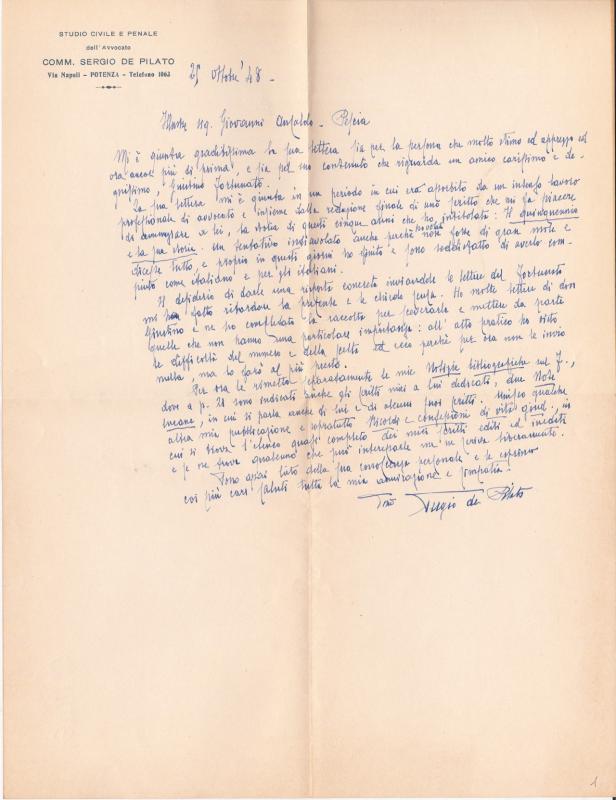 STUDIO CIVILE E PENALE
dell'Avvocato
COMM. SERGIO DE PILATO
Via Napoli - POTENZA - Telefono 1063
25 Ottobre '48 -
Illustre sig. Giovanni Ansaldo - Pescia
Mi è giunta graditissima la sua lettera sia per la persona che molto stimo ed apprezzo ed
ora ancor più di prima, e sia pel suo contenuto che riguarda un amico carissimo e de-
gnissimo, Giustino Fortunato.
La sua lettera mi è giunta in un periodo in cui era assorbito da un intenso lavoro
professionale di avvocato e insieme dalla redazione finale di uno scritto che mi fa piacere
di annunziare a lei, la storia di questi cinque anni che ho intitolato: Il quinquennio
e la sua storia. Un tentativo indiavolato anche perchè non fosse di gran mole e
dicesse tutto, e proprio in questi giorni ho finito e sono soddisfatto di averlo com-
piuto come italiano e per gli italiani.
Il desiderio di darle una risposta concreta inviandole le lettere del Fortunato
mi ha fatto ritardare la presente e le chiedo scusa. Ho molte lettere di don
Giustino e ne ho completata la raccolta per scegliere e mettere da parte
quelle che non hanno una particolare importanza: all'atto pratico ho visto
le difficoltà del numero e della scelta ed ecco perchè per ora non le invio
nulla, ma lo farò al più presto.
Per ora le rimetto separatamente le mie Notizie bibliografiche sul F.,
dove a p. 21 sono indicati anche gli scritti miei a lui dedicati, due Note
lucane, in cui si parla anche di lui e di alcuni suoi scritti. Unisco qualche
altra mia pubblicazione e sopratutto Ricordi e confessioni di vita giud., in
cui si trova l'elenco quasi completo dei miei scritti editi ed inediti
e se ne trova qualcuno che può interessarle me ne scriva liberamente.
Sono assai lieto della sua conoscenza personale e le esprimo
coi più cari saluti tutta la mia ammirazione e simpatia!
Suo Sergio de Pilato
1